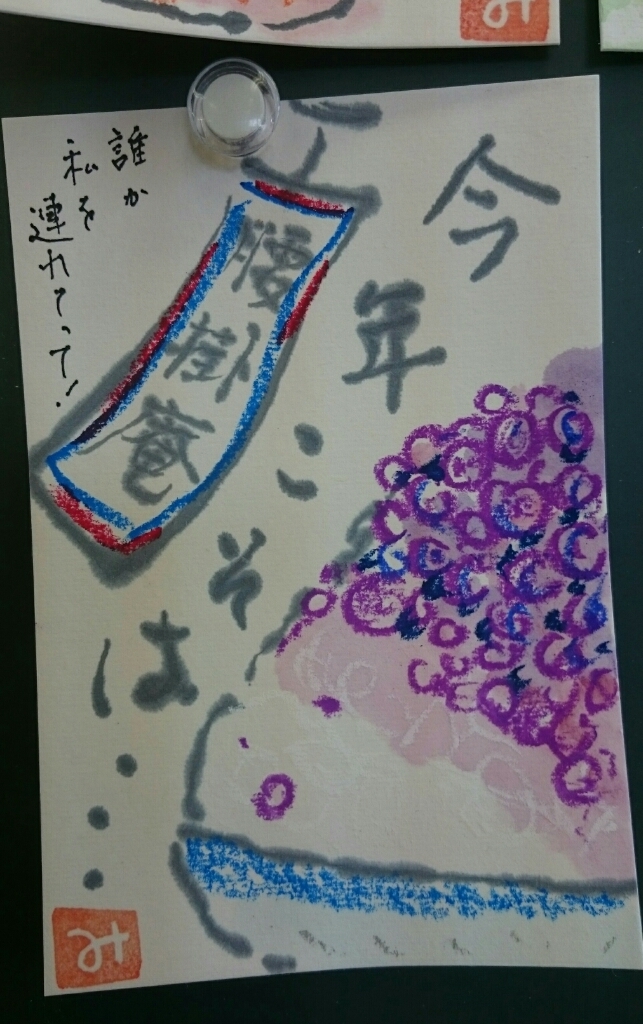 今年こそは…
腰掛庵
誰か
私を
連れてって!